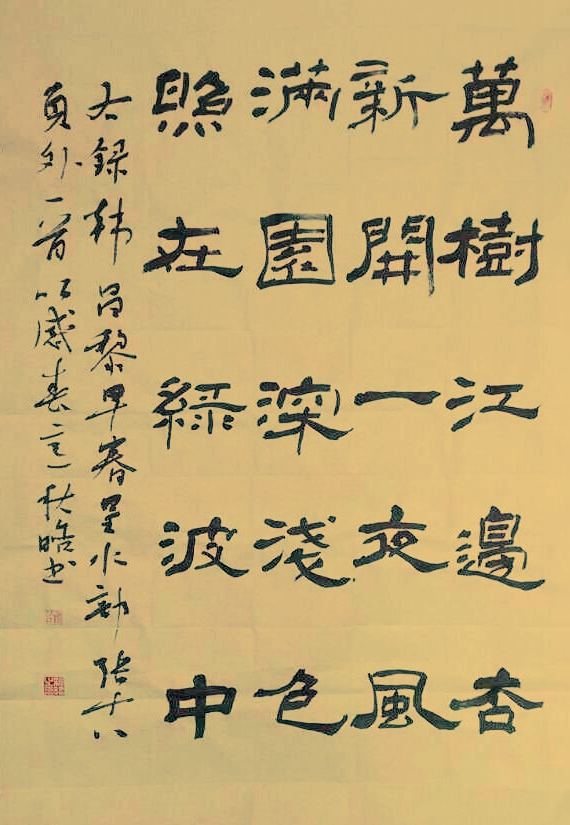 萬樹江邊杏
新開一夜風
滿園深淺色
照在綠波中
右録韩昌黎早春呈水部张十八
員外一首以感春意秋皓书